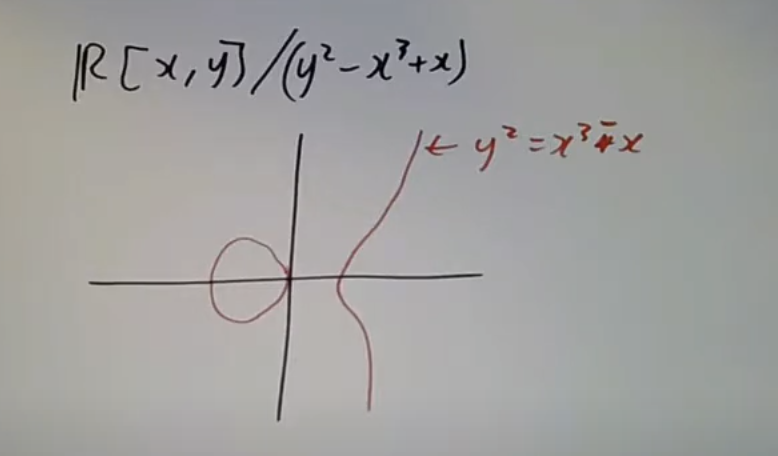 ℝ[x,y]/(y²-x³+x)
← y²=x³-x